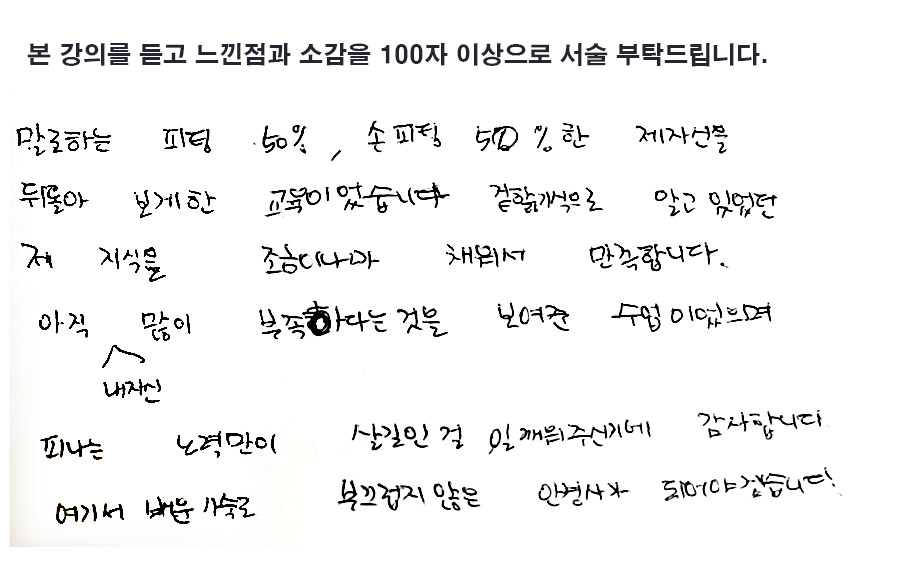 본 강의를 듣고 느낀점과 소감을 100자 이상으로 서술 부탁드립니다.
말로하는 피팅 50%, 손피팅 50%한 제자신을
뒤돌아 보게한 교육이었습니다 겉핥기식으로 알고 있었던
제 지식을 조금이나마 채워서 만족합니다.
아직 많이 부족하다는것을 보여준 수업이었으며
내자신
피나는 노력만이 살길인걸 일깨워주신거에 감사합니다
여기서 배운 기술로 부끄럽지 않은 안경사가 되어야겠습니다!